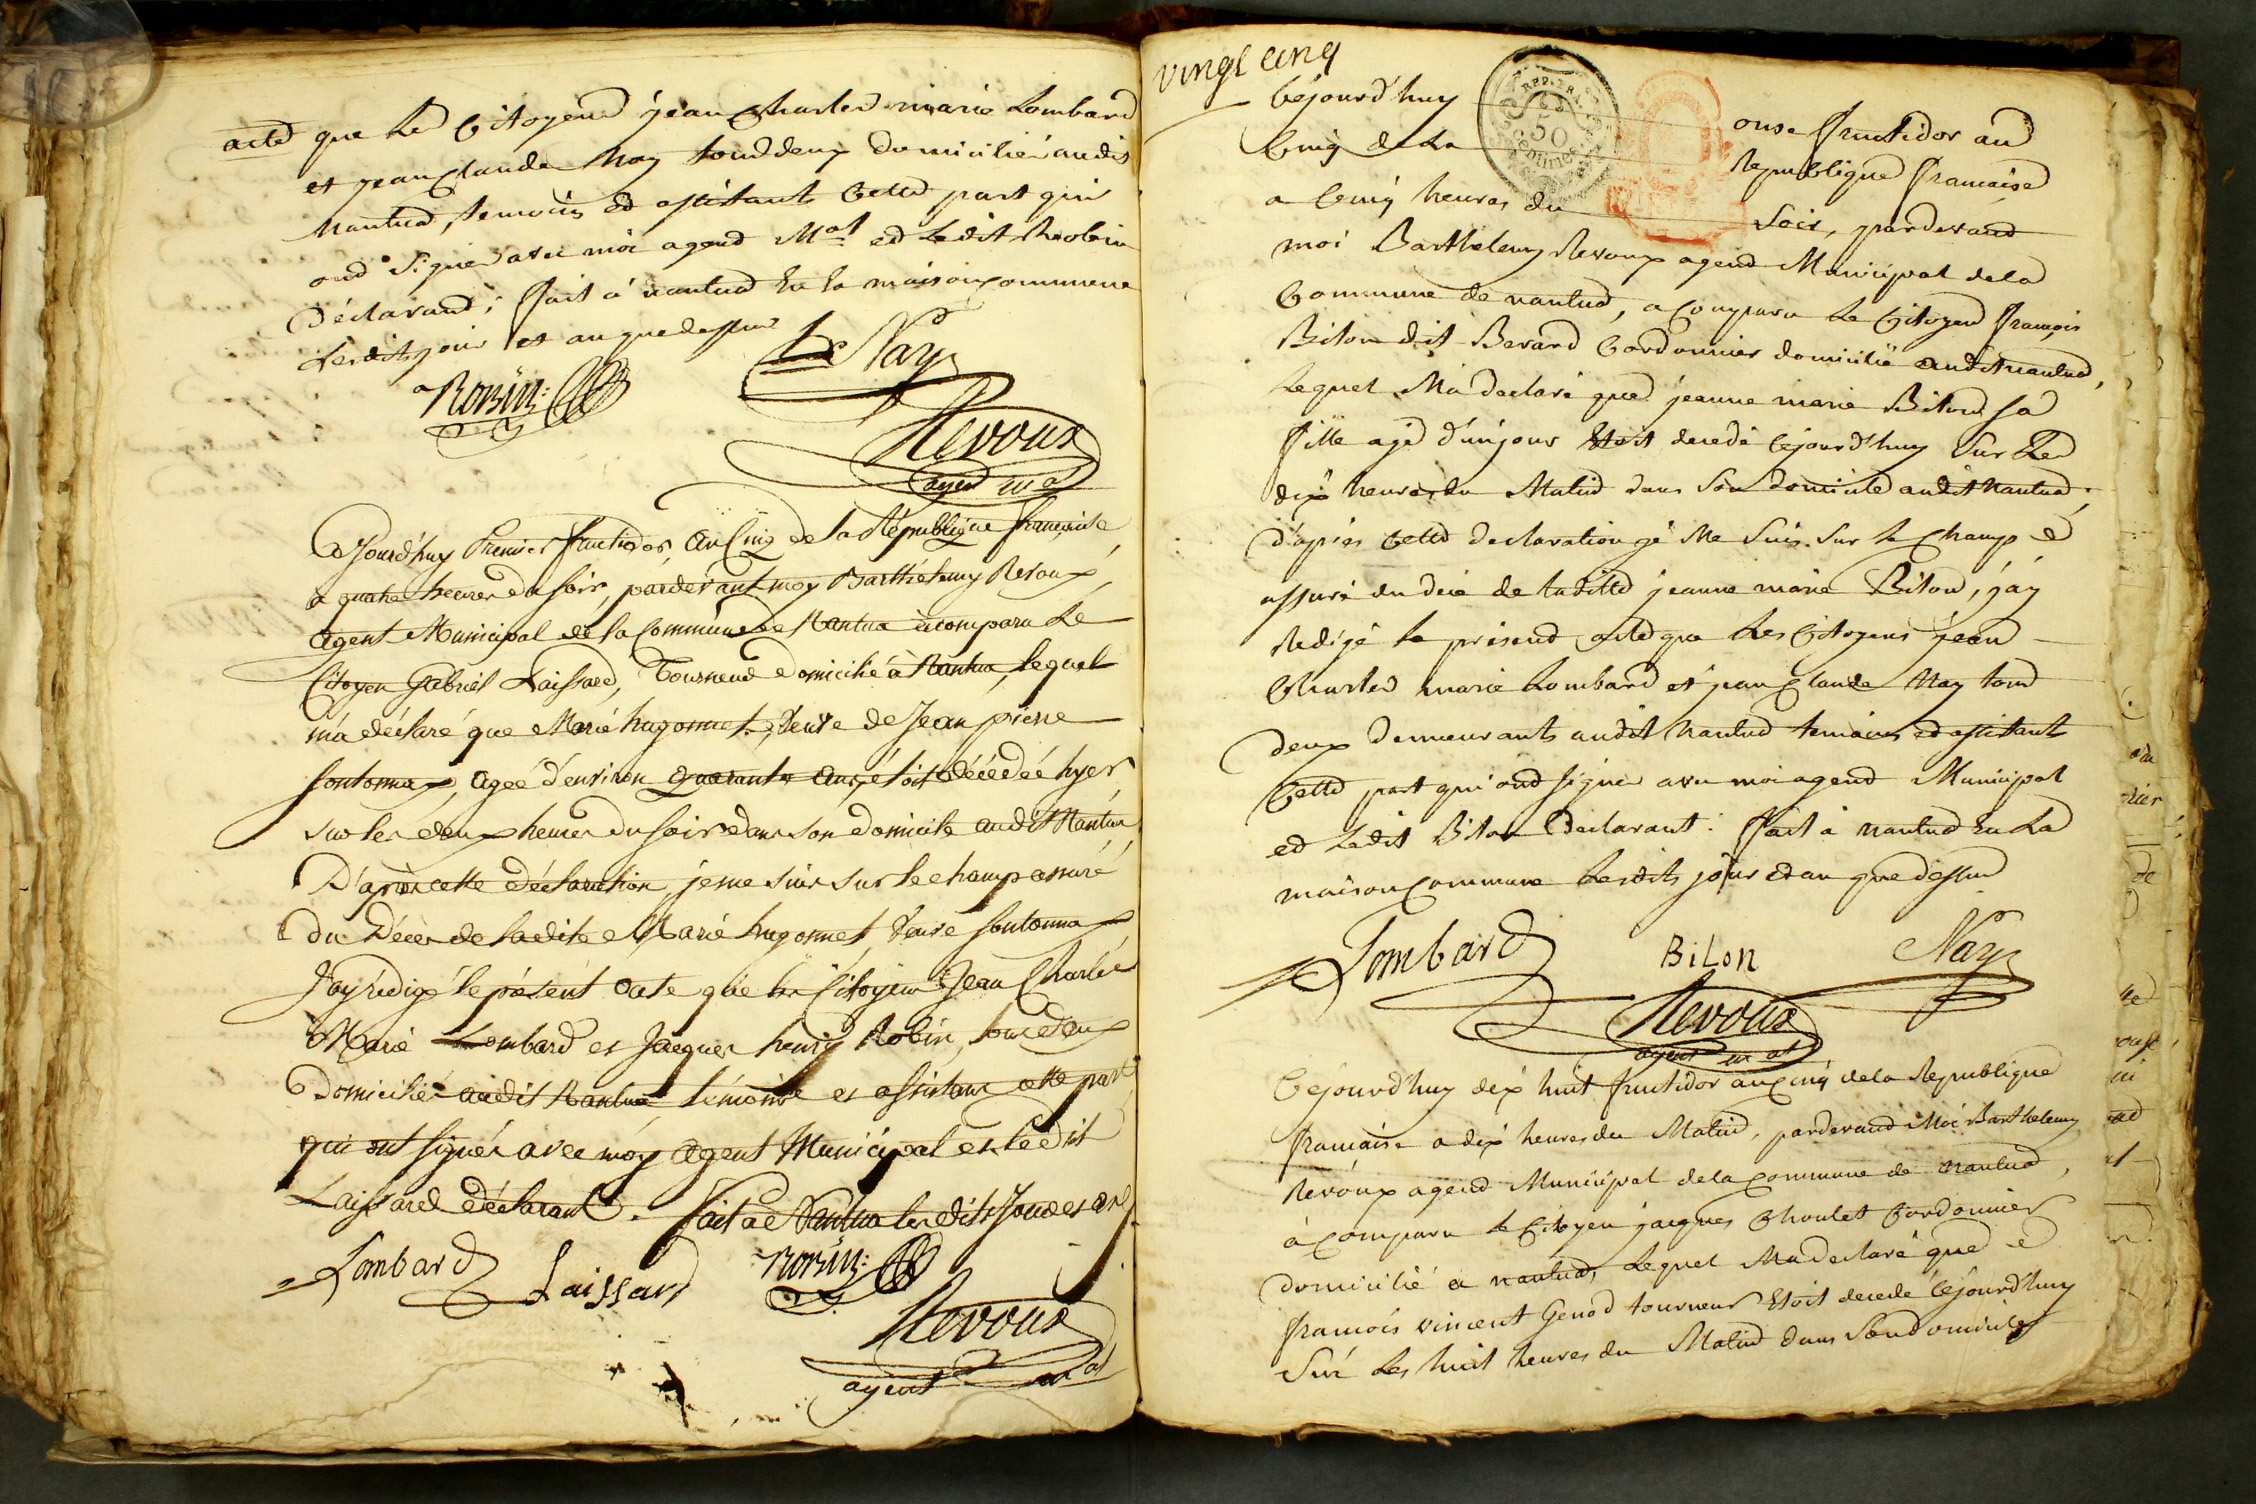 acte que les Citoyens jean Charles marie Lombard
et jean Claude Nay tous deux domiciliés audit
Nantua, temoins et assistants Cette part qui
ont Signés avec moi agend Mal et Ledit Robin
Déclarand; fait à nantua En la maison Commune
Lesdits jour et an que dessus
Nay
ROBIN
Revoux
agend mal
Cejourd'huy Premier fructidor an Cinq de la République française
a quatre heures du soir, pardevant moy Barthélemy Revoux,
agent Municipal de la Commune de Nantua a comparu Le
Citoyen Gabriel Laissard, Tourneur domicilié à Nantua, lequel
m'a déclaré que Marie hugonnet, veuve de Jean pierre
fontonnax, agée d'environ quarante ans, étoit décedée hyer
sur les deux heures du soir dans son domicile audit Nantua
D'après cette déclaration, je me suis sur le champ assuré
du Décès de ladite Marie hugonnet, Veuve fontonnax
J'ay rédigé le présent acte que les Citoyens Jean Charles
Marie Lombard et Jacques henry Robin, tous deux
Domiciliés audit Nantua témoins et assistans cette part
qui ont signés avec moy agent Municipal et ledit
Laissard déclarant. fait a Nantua les dits Jour et an
Lombard
Laissard
ROBIN
Revoux
agent mal
vingt cinq
REP. FRA.
50
Centimes
Cejourd'huy onse fructidor an
Cinq de la Republique francaise
a Cinq heures du Soir, pardevand
moi Barthelemy Revoux agend Municipal de la
Commune de nantua, a Comparu Le Citoyen françois
Bilon dit Berard Cordonnier domicilié audit nantua,
Lequel M'a declaré que jeanne marie Bilon sa
fille agé d'un jour Etoit decedé Cejourd'huy Sur Les
dix heures du Matin dans son domicile audit Nantua;
d'après Cette declaration je Me Suis Sur le Champ
assuré du decé de laditte jeanne marie Bilon, j'ay
Redigé le présend acte que Les Citoyens jean
Charles marie Lombard et jean Claude Nay tous
deux demeurants audit Nantua temoins et assistants
Cette part qui ond signé avec moi agend Municipal
et Ledit Bilon Declarant: fait à nantua En La
maison Commune Lesdits jour et an que dessus
Lombard
BiLon
Nay
Revoux
agent mal
Cejourd'huy dix huit fructidor an Cinq de la Republique
francaise a dix heures du Matin, pardevand Moi Barthelemy
Revoux agend Municipal de la Commune de nantua,
à Comparu le Citoyen jacques Choulet Cordonnier
domicilié a nantua, Lequel M'a declaré que
francois vincent Genod tourneur Etoit decedé Cejourd'huy
Sur Les huit heures du Matin dans Son domicile